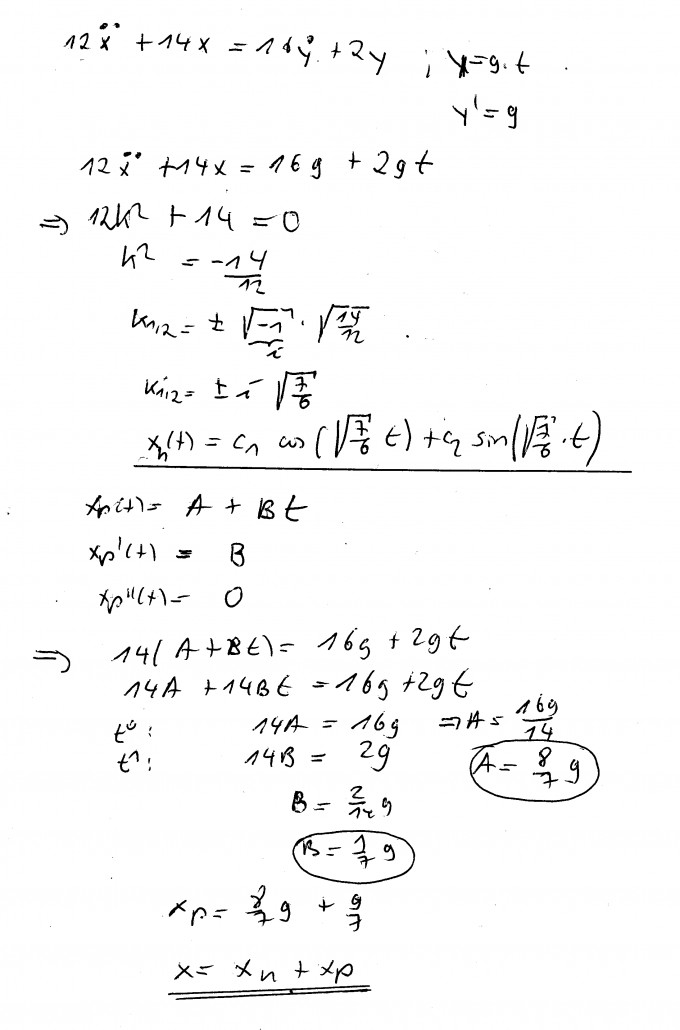 12ẍ + 14x = 16ẏ + 2y ; y = g·t
y' = g
12ẍ + 14x = 16g + 2gt
⇒ 12k² + 14 = 0
k² = -14/12
k1,2 = ± √-1 · √14/12
i
k1,2 = ± i √7/6
xh(t) = c1 cos(√7/6 t) + c2 sin(√7/6 · t)
xp(t) = A + Bt
xp'(t) = B
xp''(t) = 0
⇒ 14(A + Bt) = 16g + 2gt
14A + 14Bt = 16g + 2gt
t⁰: 14A = 16g ⇒ A = 16g/14
t¹: 14B = 2g A = 8/7 g
B = 2/14 g
B = 1/7 g
xp = 8/7 g + g/7
x = xh + xp